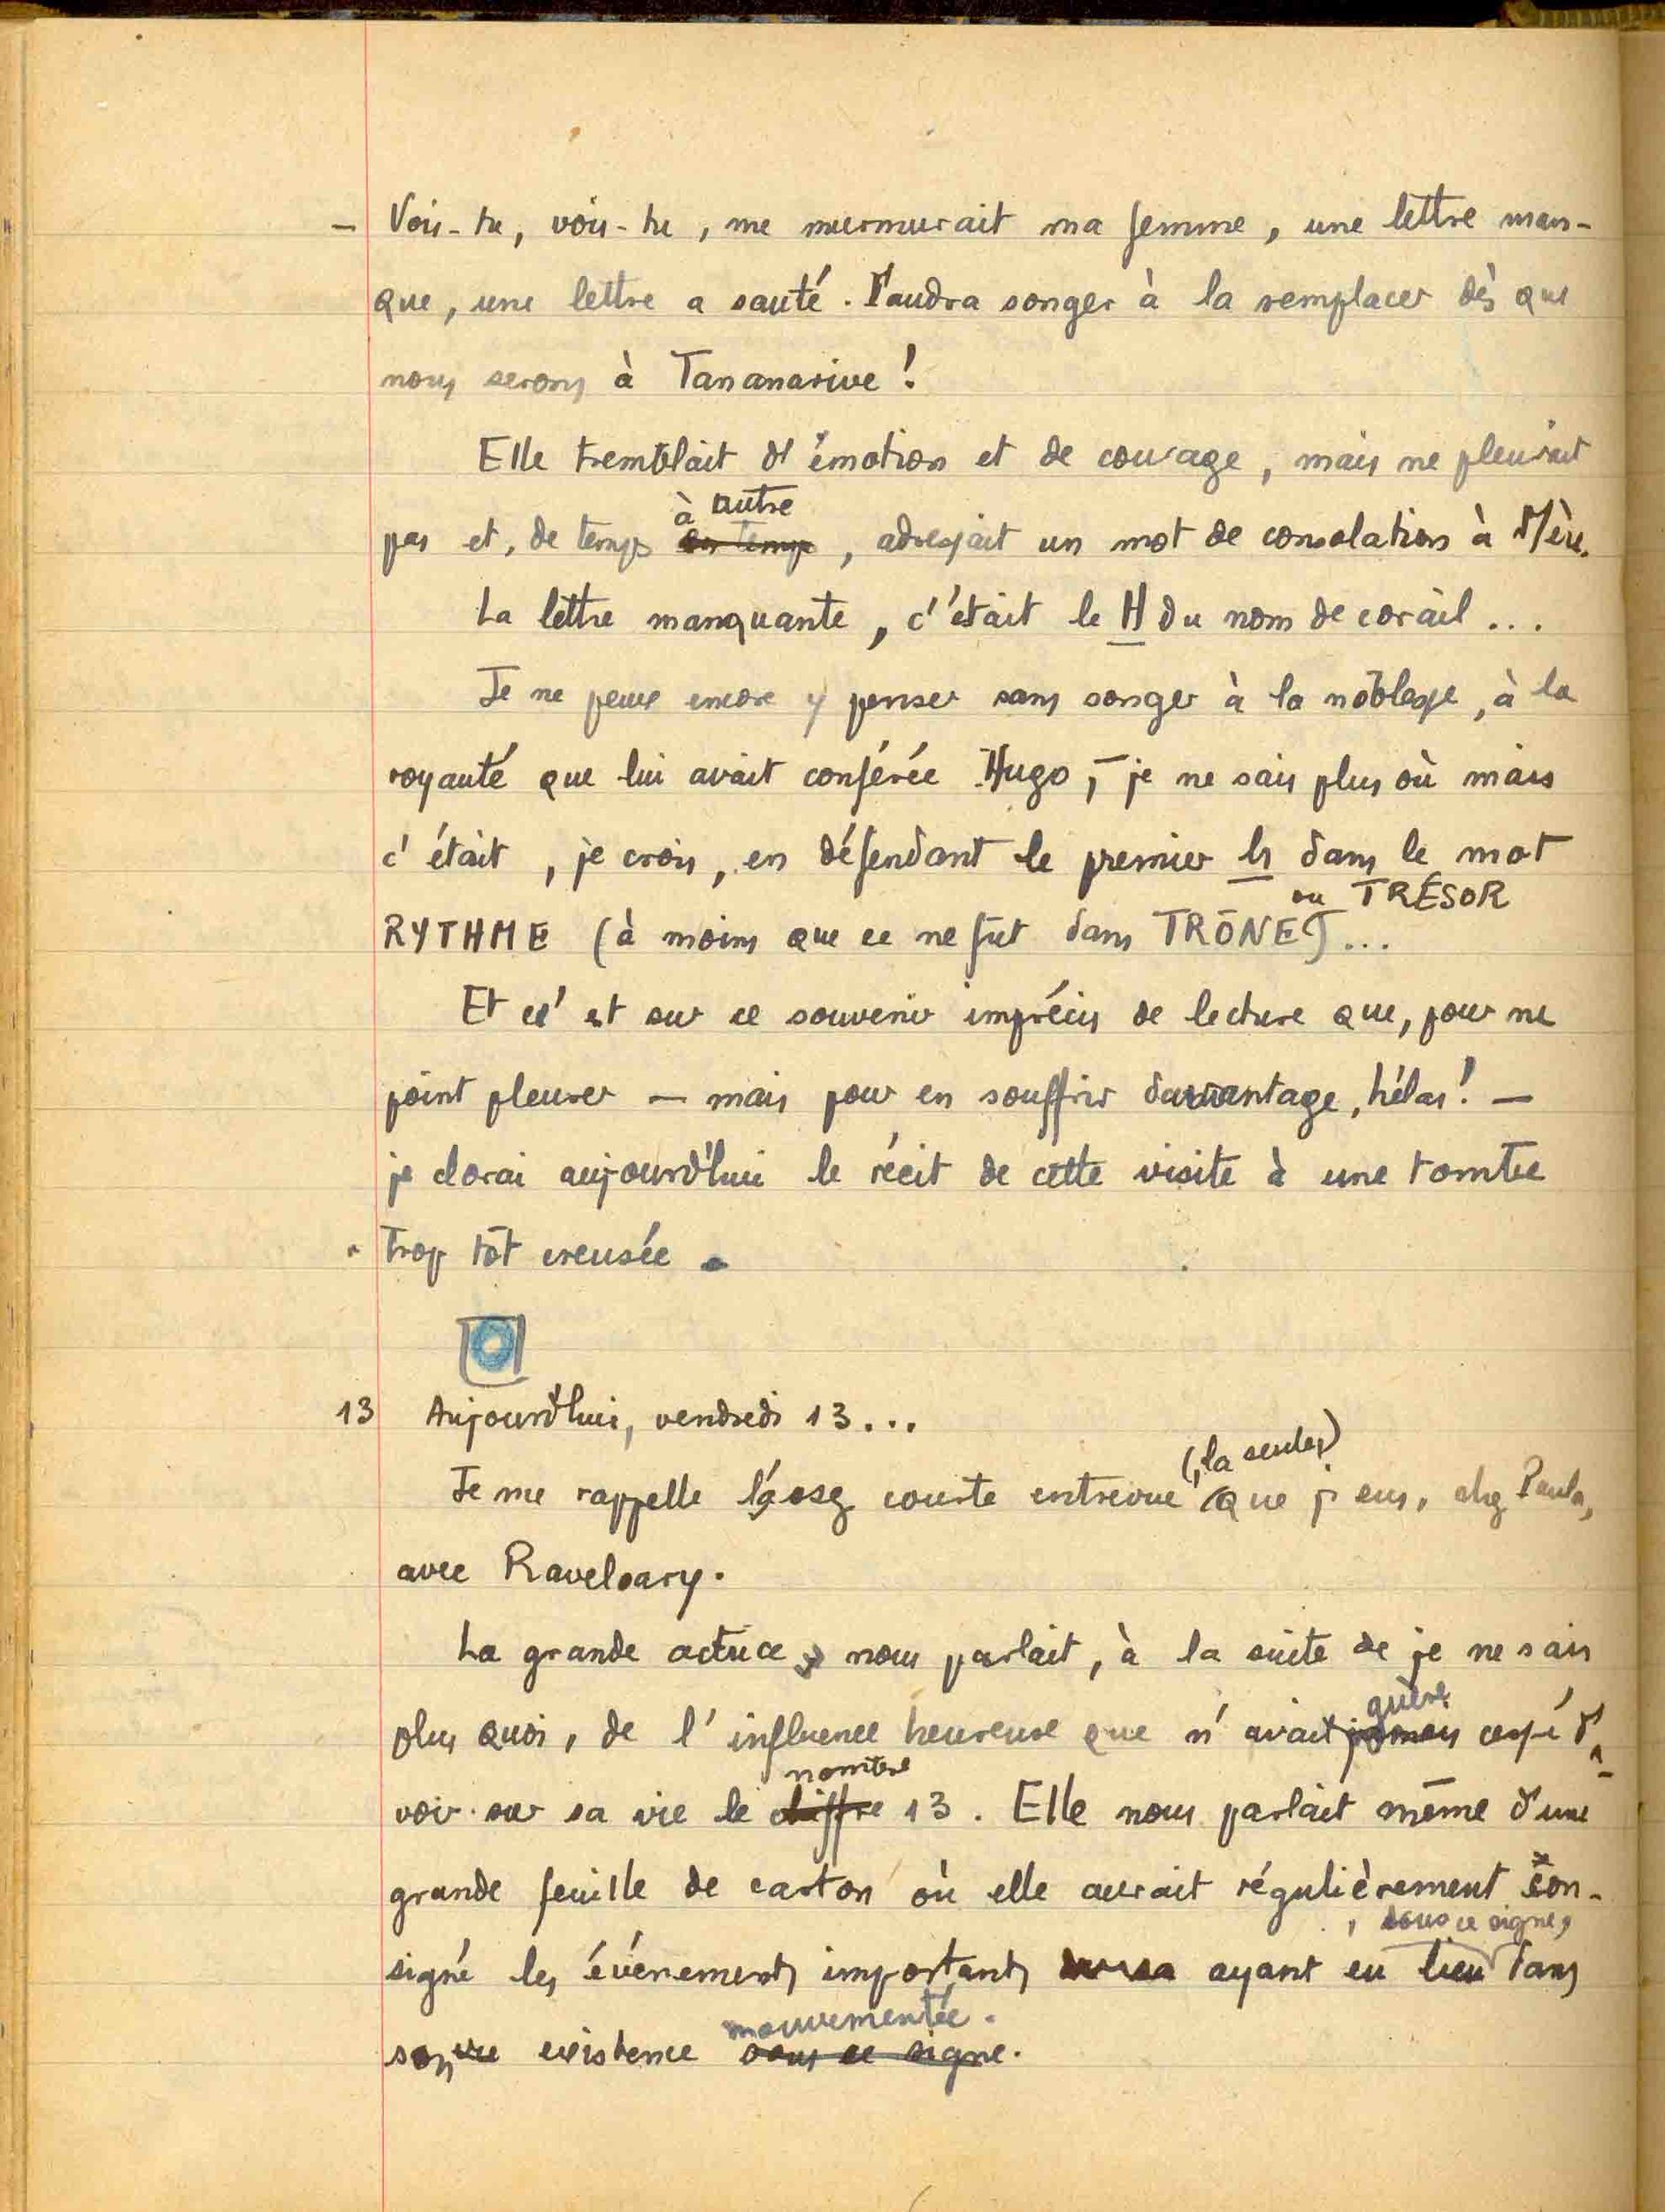 – Vois-tu, vois-tu, me murmurait ma femme, une lettre man-
que, une lettre a sauté. Faudra songer à la remplacer dès que
nous serons à Tananarive !
Elle tremblait d'émotion et de courage, mais ne pleurait
à autre
pas et, de temps en temps, adressait un mot de consolation à Mère.
La lettre manquante, c'était le H du nom de corail...
Je ne peux encore y penser sans songer à la noblesse, à la
royauté que lui avait conférée Hugo, – je ne sais plus où mais
c'était, je crois, en défendant le premier h dans le mot
ou TRÉSOR
RYTHME (à moins que ce ne fût dans TRÔNE)...
Et c'est sur ce souvenir imprécis de lecture que, pour ne
point pleurer – mais pour en souffrir davantage, hélas ! –
je clorai aujourd'hui le récit de cette visite à une tombe
trop tôt creusée.
13 Aujourd'hui, vendredi 13...
(la seule,)
Je me rappelle l'assez courte entrevue que j'eus, chez Paula,
avec Raveloary.
La grande actrice nous parlait, à la suite de je ne sais
guère
plus quoi, de l'influence heureuse que n'avait jamais cessé d'a-
nombre
voir sur sa vie le chiffre 13. Elle nous parlait même d'une
grande feuille de carton où elle aurait régulièrement con-
, sous ce signe,
signé les événements importants ayant eu lieu dans
mouvementée.
son existence sous ce signe.